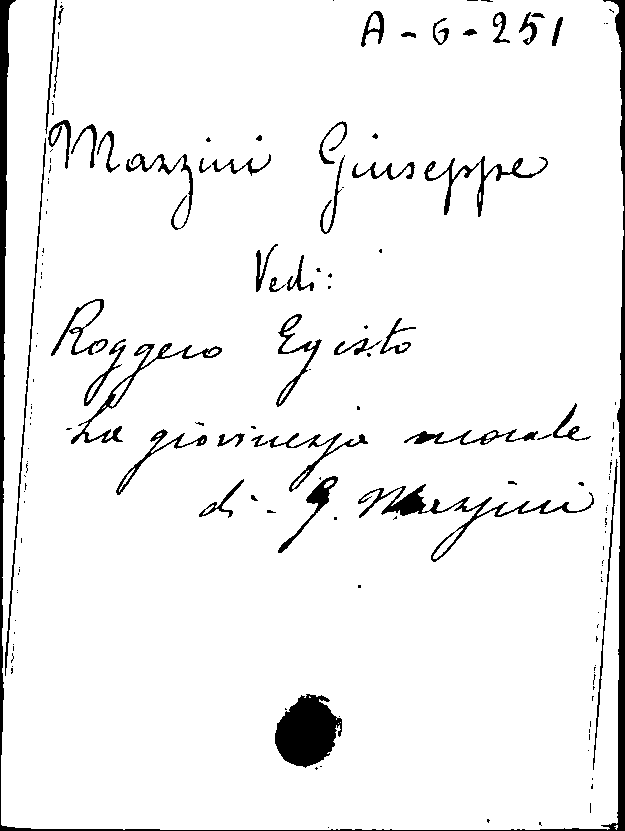 A-6-251
Mazzini Giuseppe
Vedi:
Roggero Egisto
La giovinezza morale
di G. Mazzini